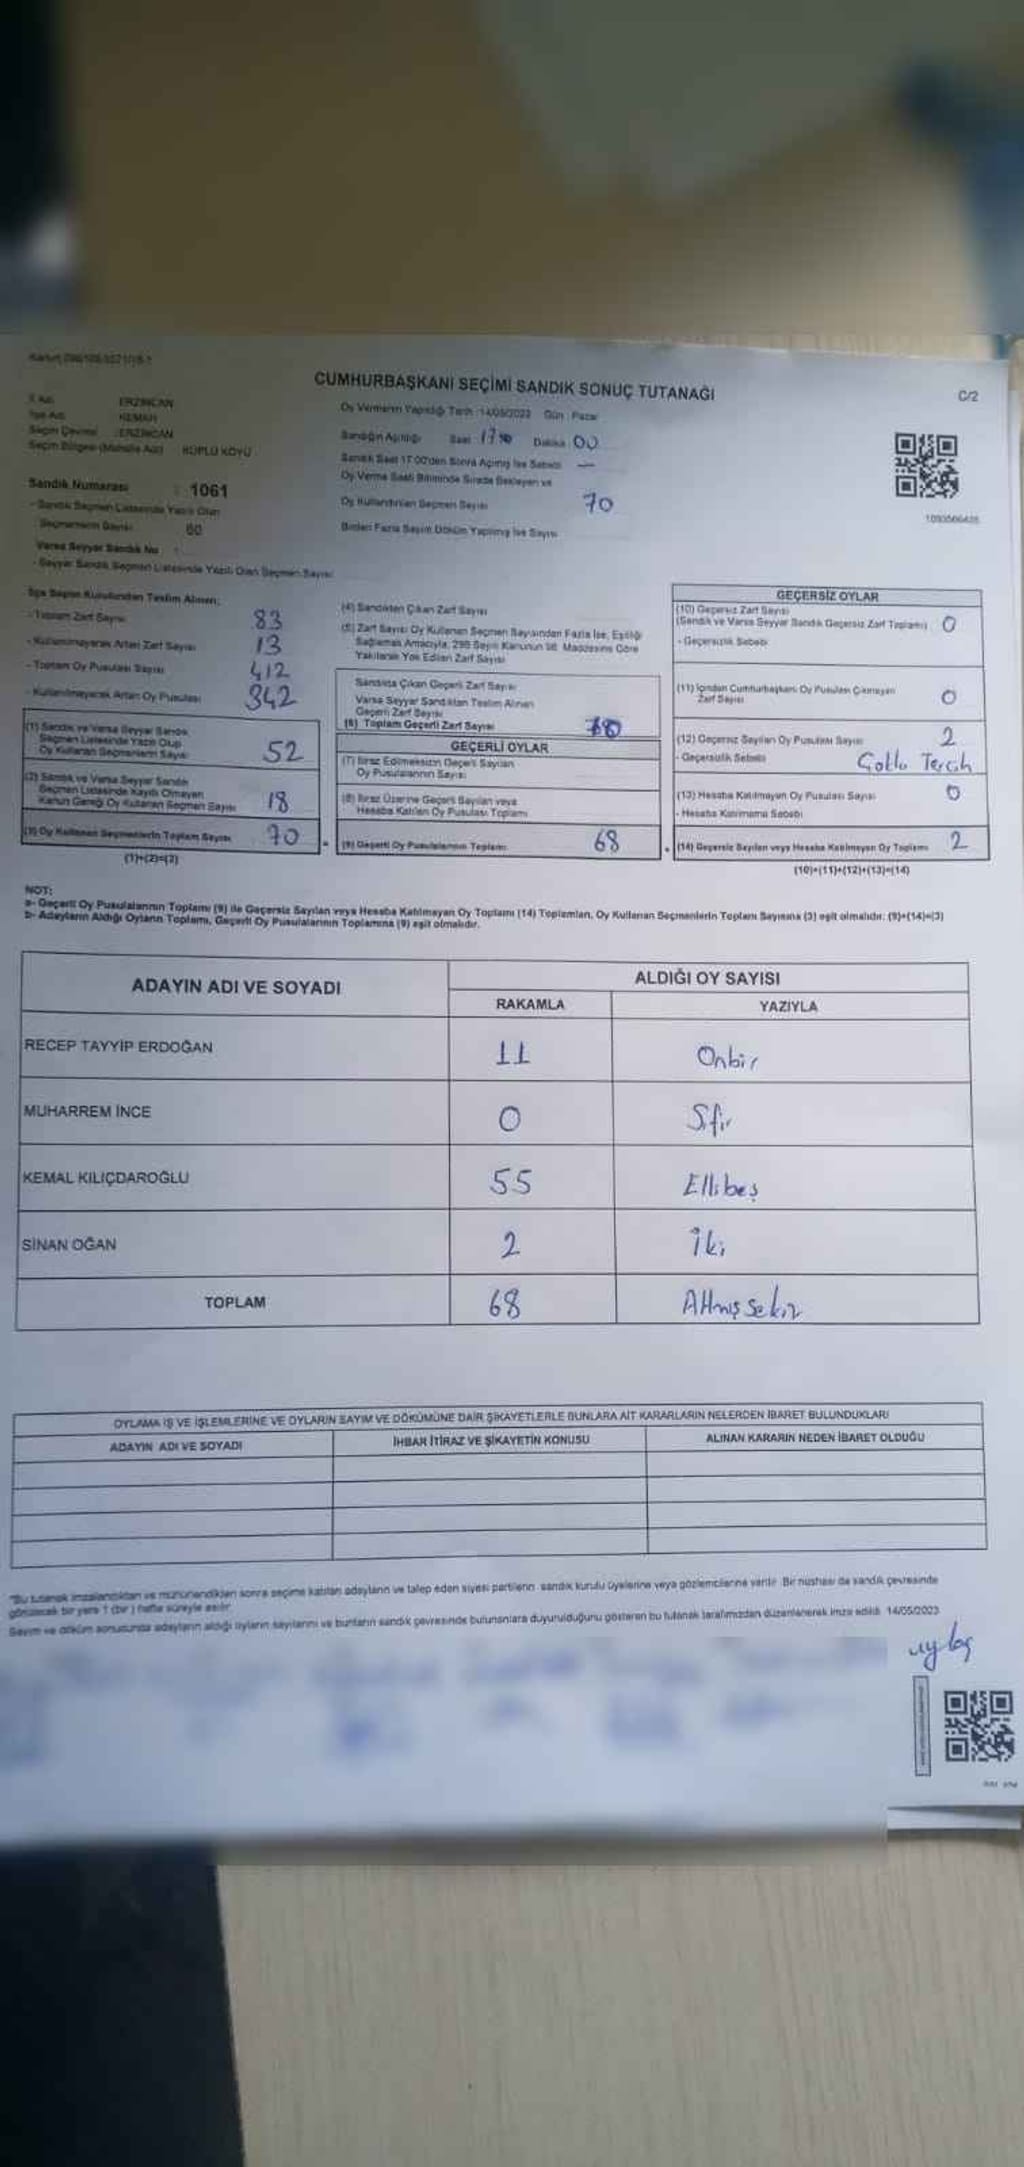 CUMHURBAŞKANI SEÇİMİ SANDIK SONUÇ TUTANAĞI
C/2
İl Adı : ERZİNCAN
İlçe Adı : KEMAH
Seçim Çevresi : ERZİNCAN
Seçim Bölgesi (Mahalle Adı) KÖYÜ
Sandık Numarası : 1061
- Sandık Seçmen Listesinde Yazılı Olan
Seçmenlerin Sayısı 60
Varsa Seyyar Sandık No :
- Seyyar Sandık Seçmen Listesinde Yazılı Olan Seçmen Sayısı
Oy Vermenin Yapıldığı Tarih : 14/05/2023 Gün : Pazar
Sandığın Açıldığı Saat Dakika 00
Sandık Saat 17:00'den Sonra Açılmış İse Sebebi —
Oy Verme Saati Bitiminde Sırada Bekleyen ve
Oy Kullandırılan Seçmen Sayısı 70
Birden Fazla Sayım Döküm Yapılmış İse Sayısı
İlçe Seçim Kurulundan Teslim Alınan;
- Toplam Zarf Sayısı 83
- Kullanılmayarak Artan Zarf Sayısı 13
- Toplam Oy Pusulası Sayısı 412
- Kullanılmayarak Artan Oy Pusulası 342
(1) Sandık ve Varsa Seyyar Sandık
Seçmen Listesinde Yazılı Olup
Oy Kullanan Seçmenlerin Sayısı 52
(2) Sandık ve Varsa Seyyar Sandık
Seçmen Listesinde Kayıtlı Olmayan
Kanun Gereği Oy Kullanan Seçmen Sayısı 18
(3) Oy Kullanan Seçmenlerin Toplam Sayısı 70
(1)+(2)=(3)
(4) Sandıktan Çıkan Zarf Sayısı
(5) Zarf Sayısı Oy Kullanan Seçmen Sayısından Fazla İse, Eşitliği
Sağlamak Amacıyla, 298 Sayılı Kanunun 98. Maddesine Göre
Yakılarak Yok Edilen Zarf Sayısı
Sandıkta Çıkan Geçerli Zarf Sayısı
Varsa Seyyar Sandıktan Teslim Alınan
Geçerli Zarf Sayısı
(6) Toplam Geçerli Zarf Sayısı
GEÇERLİ OYLAR
(7) İtiraz Edilmeksizin Geçerli Sayılan
Oy Pusulalarının Sayısı
(8) İtiraz Üzerine Geçerli Sayılan veya
Hesaba Katılan Oy Pusulası Toplamı
(9) Geçerli Oy Pusulalarının Toplamı 68
GEÇERSİZ OYLAR
(10) Geçersiz Zarf Sayısı
(Sandık ve Varsa Seyyar Sandık Geçersiz Zarf Toplamı) 0
- Geçersizlik Sebebi
(11) İçinden Cumhurbaşkanı Oy Pusulası Çıkmayan
Zarf Sayısı 0
(12) Geçersiz Sayılan Oy Pusulası Sayısı 2
- Geçersizlik Sebebi Çoklu Tercih
(13) Hesaba Katılmayan Oy Pusulası Sayısı 0
- Hesaba Katılmama Sebebi
(14) Geçersiz Sayılan veya Hesaba Katılmayan Oy Toplamı 2
(10)+(11)+(12)+(13)=(14)
NOT:
a- Geçerli Oy Pusulalarının Toplamı (9) ile Geçersiz Sayılan veya Hesaba Katılmayan Oy Toplamı (14) Toplamları, Oy Kullanan Seçmenlerin Toplam Sayısına (3) eşit olmalıdır. (9)+(14)=(3)
b- Adayların Aldığı Oyların Toplamı, Geçerli Oy Pusulalarının Toplamına (9) eşit olmalıdır.
ADAYIN ADI VE SOYADI
ALDIĞI OY SAYISI
RAKAMLA YAZIYLA
RECEP TAYYİP ERDOĞAN 11 Onbir
MUHARREM İNCE 0 Sıfır
KEMAL KILIÇDAROĞLU 55 Ellibeş
SİNAN OĞAN 2 İki
TOPLAM 68 Altmışsekiz
OYLAMA İŞ VE İŞLEMLERİNE VE OYLARIN SAYIM VE DÖKÜMÜNE DAİR ŞİKAYETLERLE BUNLARA AİT KARARLARIN NELERDEN İBARET BULUNDUKLARI
ADAYIN ADI VE SOYADI İHBAR İTİRAZ VE ŞİKAYETİN KONUSU ALINAN KARARIN NEDEN İBARET OLDUĞU
"Bu tutanak imzalandıktan ve mühürlendikten sonra seçime katılan adayların ve talep eden siyasi partilerin sandık kurulu üyelerine veya gözlemcilerine verilir. Bir nüshası da sandık çevresinde
görülecek bir yere 1 (bir) hafta süreyle asılır.
Sayım ve döküm sonucunda adayların aldığı oyların sayılarını ve bunların sandık çevresinde bulunanlara duyurulduğunu gösteren bu tutanak tarafımızdan düzenlenerek imza edildi. 14/05/2023